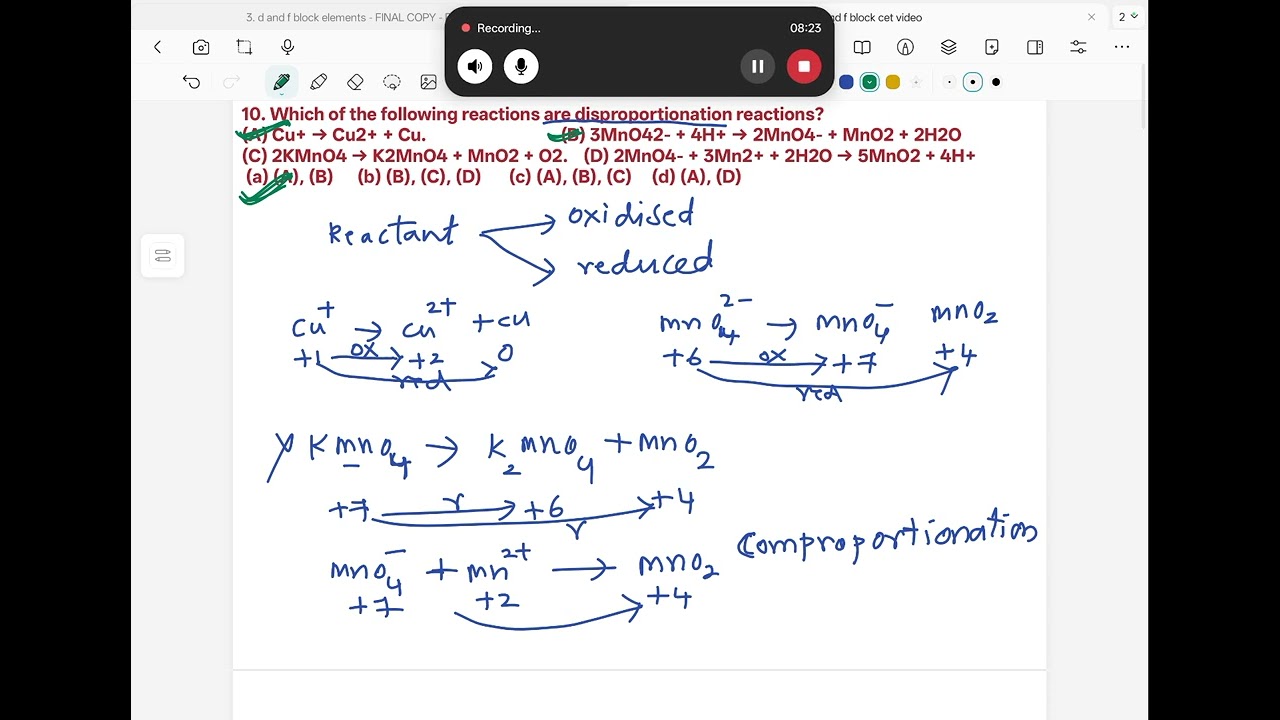 3. d and f block elements - FINAL COPY -
d f block cet video
2
Recording...
08:23
10. Which of the following reactions are disproportionation reactions?
(A) Cu+ → Cu2+ + Cu. (B) 3MnO42- + 4H+ → 2MnO4- + MnO2 + 2H2O
(C) 2KMnO4 → K2MnO4 + MnO2 + O2. (D) 2MnO4- + 3Mn2+ + 2H2O → 5MnO2 + 4H+
(a) (A), (B) (b) (B), (C), (D) (c) (A), (B), (C) (d) (A), (D)
Reactant
oxidised
reduced
Cu⁺ → Cu²⁺ + Cu
+1 ox +2 0
red
MnO₄²⁻ → MnO₄⁻ MnO₂
+6 ox +7 +4
red
KMnO₄ → K₂MnO₄ + MnO₂
+7 r +6 +4
r
MnO₄⁻ + Mn²⁺ → MnO₂ Comproportionation
+7 +2 +4